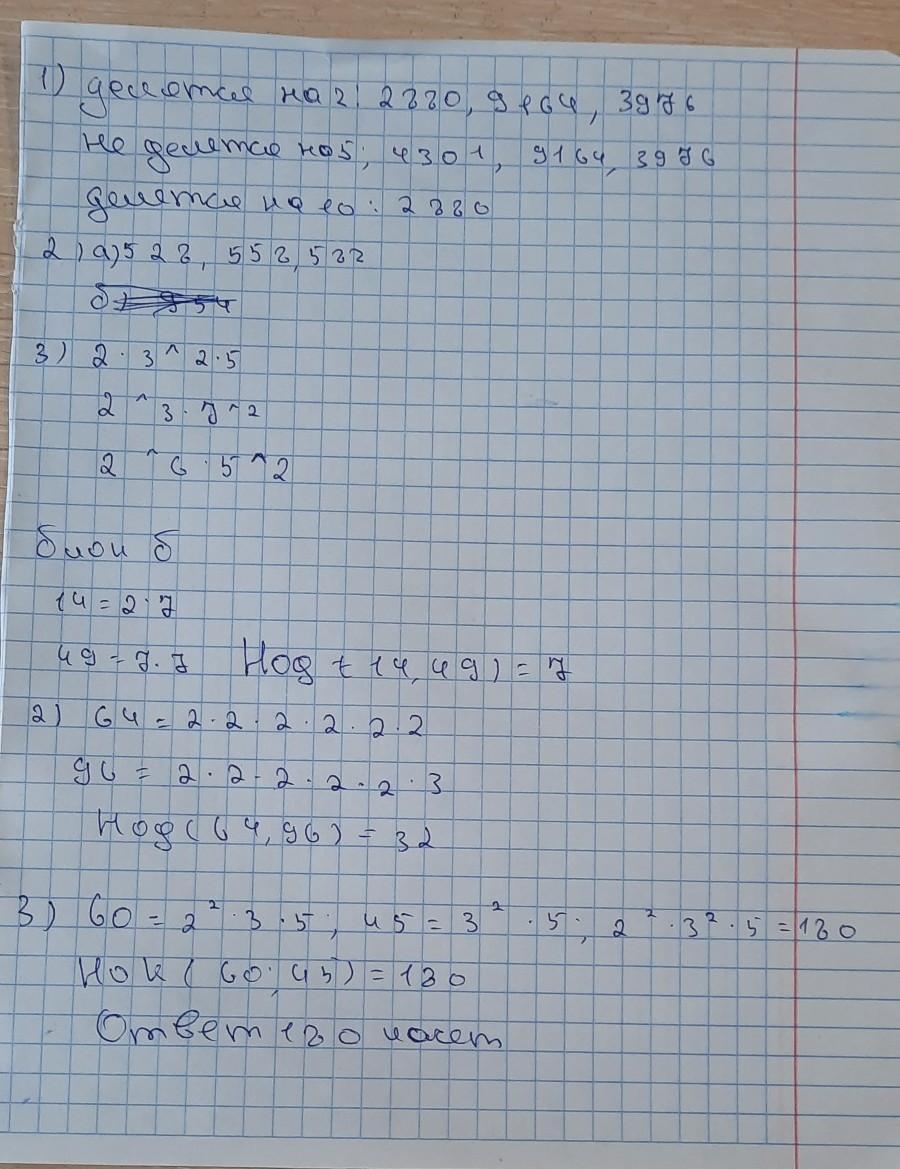 1) делятся на 2: 2880, 9164, 3976
не делятся на 5; 4301, 9164, 3976
делятся на 10: 2880
2) а) 528, 558, 588
б) 954
3) 2 · 3 ^ 2 · 5
2 ^ 3 · 7 ^ 2
2 ^ 6 · 5 ^ 2
б
14 = 2 · 7
49 = 7 · 7 Нод (14, 49) = 7
2) 64 = 2 · 2 · 2 · 2 · 2 · 2
96 = 2 · 2 · 2 · 2 · 2 · 3
Нод (64, 96) = 32
3) 60 = 2² · 3 · 5; 45 = 3² · 5; 2² · 3² · 5 = 180
Нок (60; 45) = 180
Ответ 180